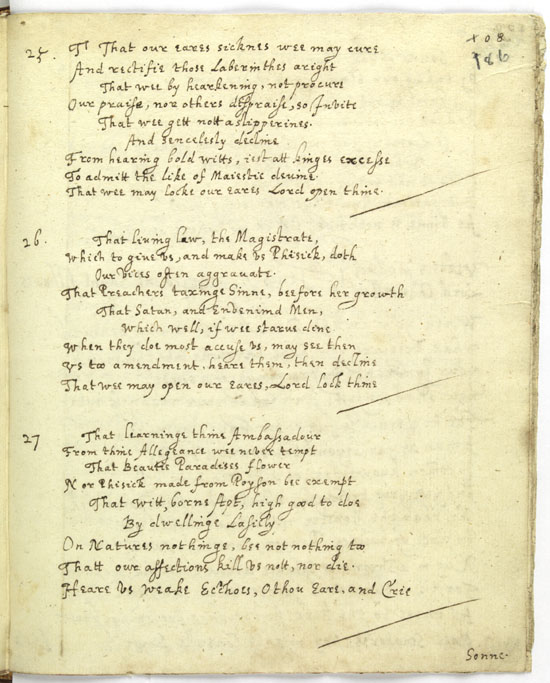 108
186
25. Tt That our eares sicknes wee may cure
And rectifie those Laberinthes aright
That wee by hearkening, not procure
Our praise, nor others dispraise, so Invite
That wee gett nott a slipperines.
And sencelesly decline
From hearing bold witts, iest att kinges excesse
To admitt the like of Maiestie devine.
That wee may locke our eares Lord open thine.
26. That living law, the Magistrate,
Which to give vs, and make vs Phisick, doth
Our vices often aggrauate.
That Preachers taxinge Sinne, beefore her growth
That Satan, and Endenimd Men,
Which well, if wee starue dine
When they doe most accuse vs, may see then
Vs too amendment, heare them, then decline
That wee may open our Eares, Lord lock thine
27 That learninge thine Ambassadour
From thine Allegeance wee never tempt
That Beautie Paradises flower
Nor Phisick made from Poyson bee exempt
That witt, borne apt, high good to doe
By dwellinge Lasilly
On Natures nothinge, bee not nothing too
Thatt our affections kill vs nott, nor die.
Heare vs weake Ecchoes, O thou Eare, and Crie
Sonne.